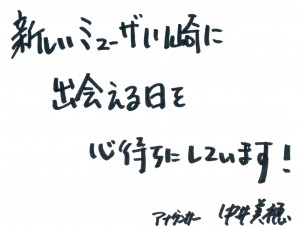 新しいミューザ川崎に
出会える日を
心待ちにしています!
アナウンサー 中井美穂